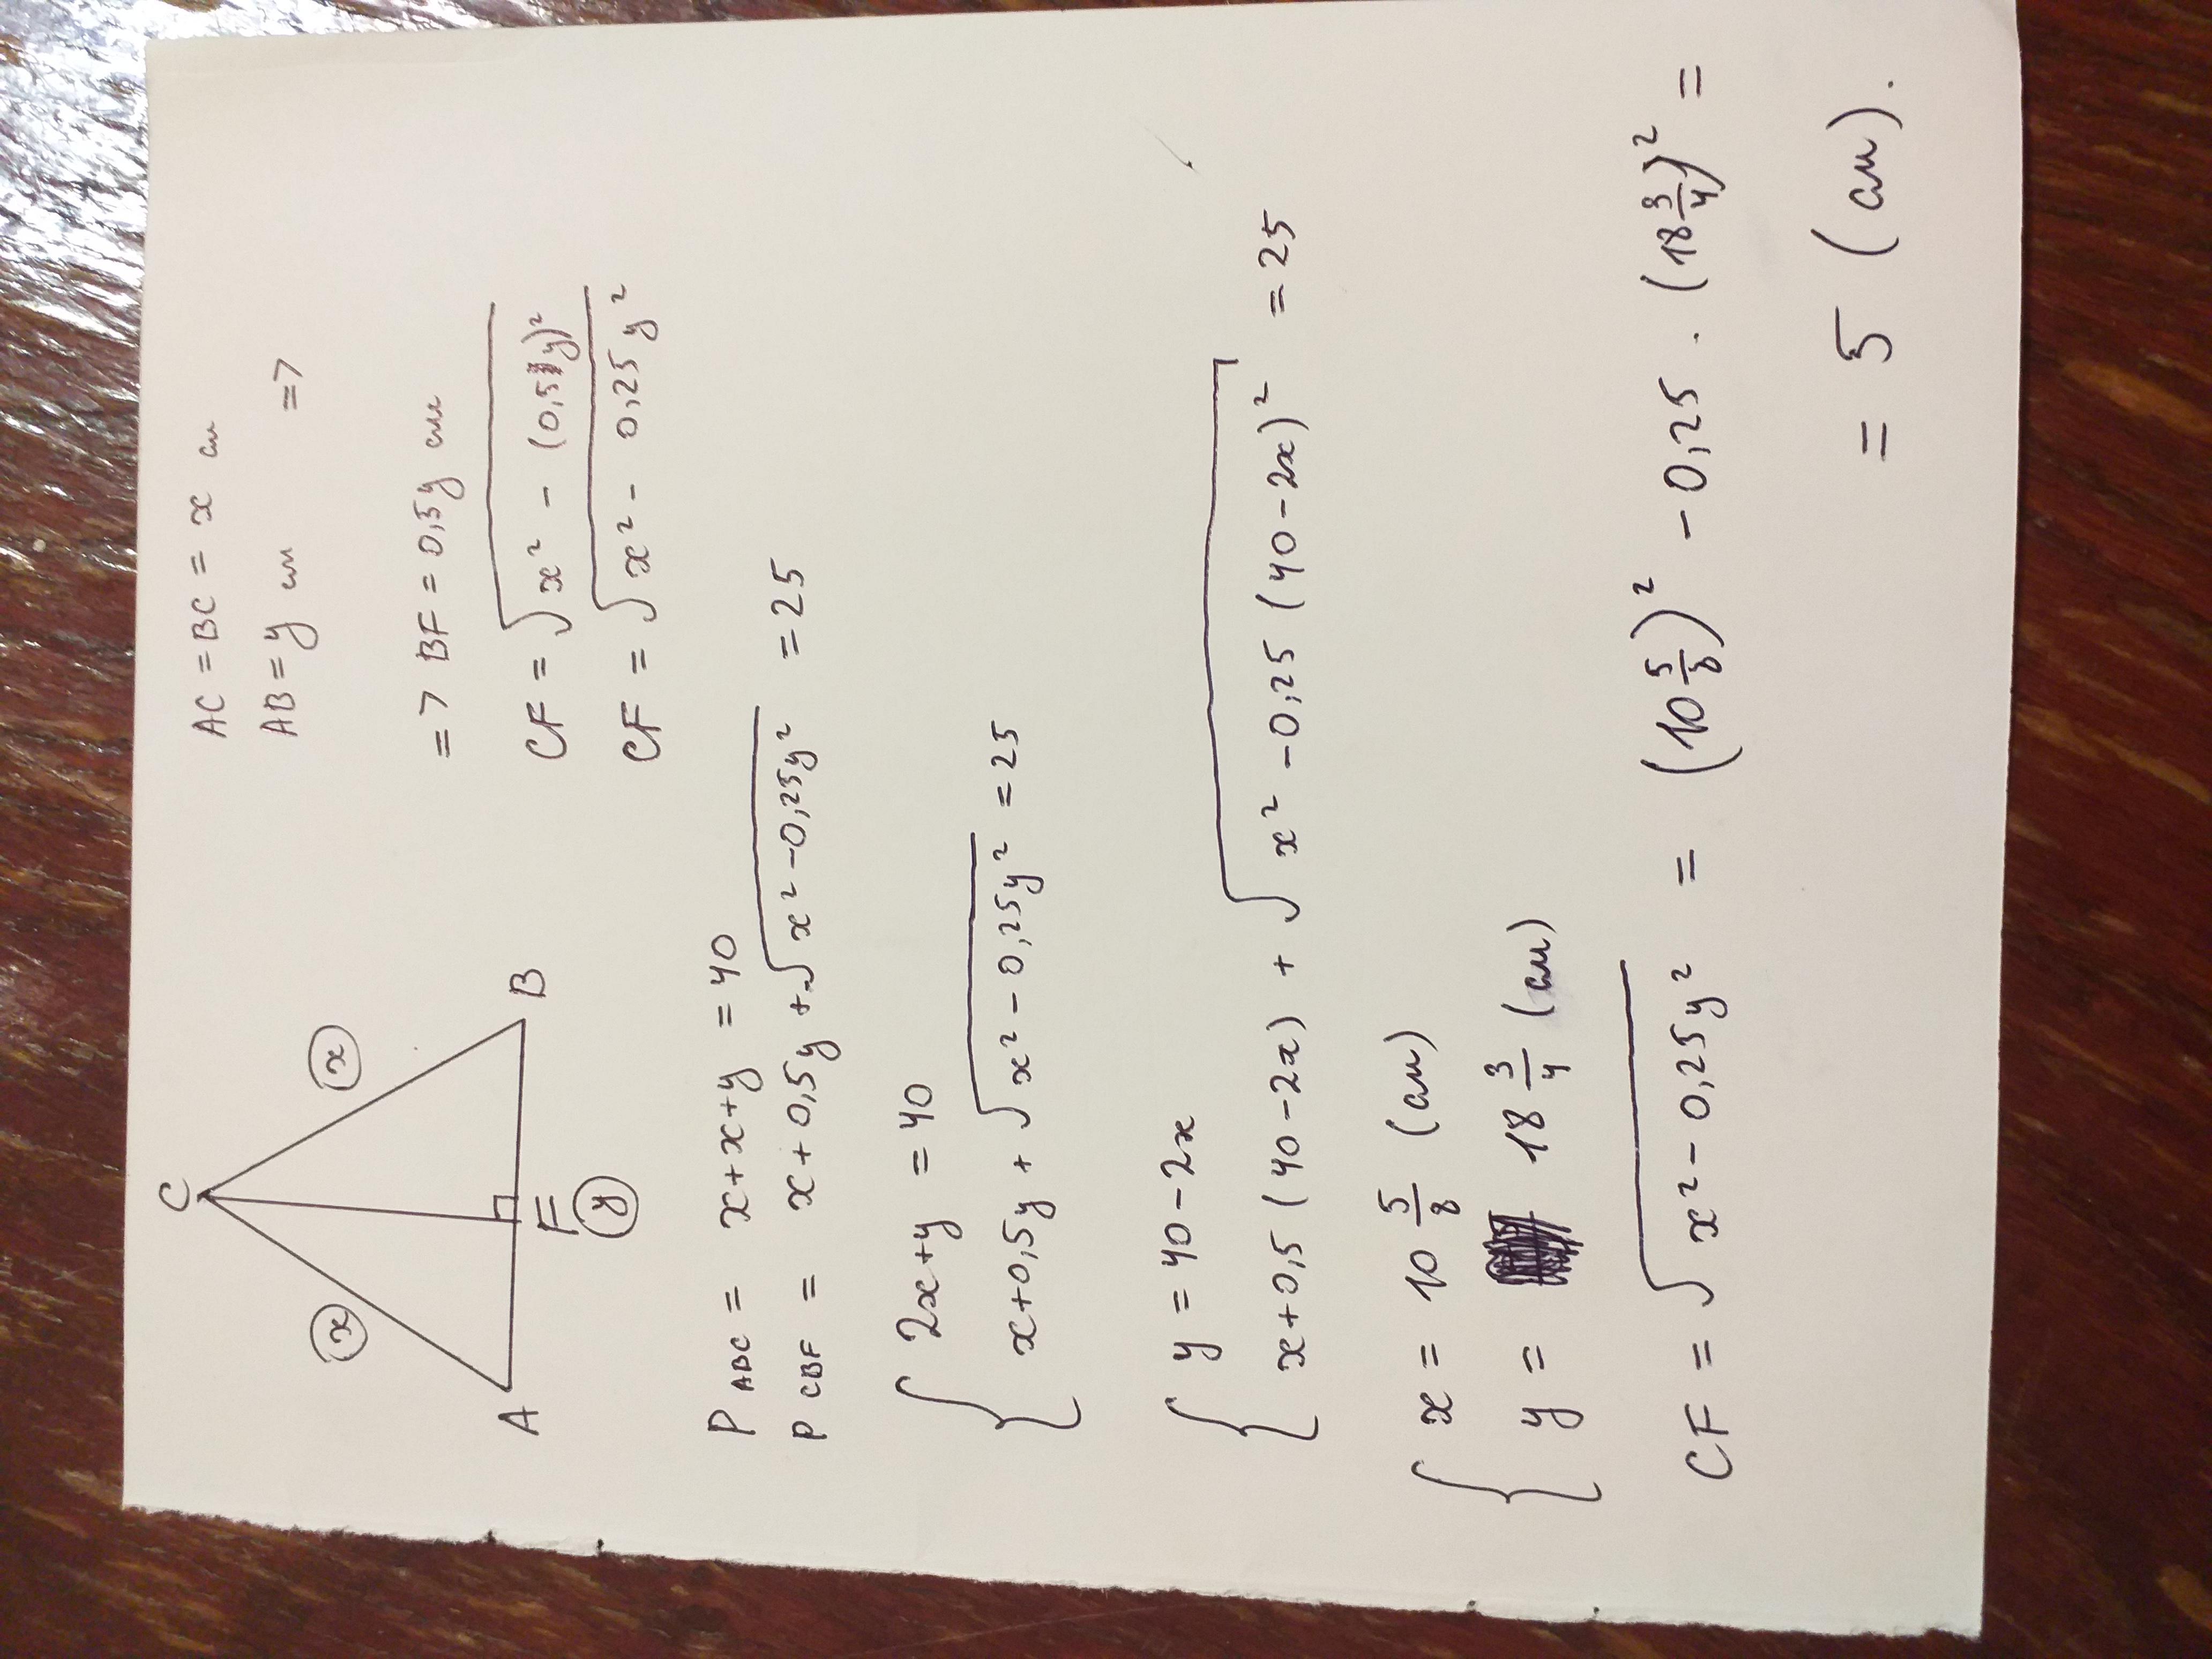 C
x x
A F B
y
AC = BC = x см
AB = y см =>
=> BF = 0,5y см
CF = √x² - (0,5y)²
CF = √x² - 0,25y²
P ABC = x+x+y = 40
P CBF = x+0,5y+√x²-0,25y² = 25
{ 2x+y = 40
x+0,5y + √x²-0,25y² = 25
{ y = 40-2x
x+0,5(40-2x) + √x²-0,25(40-2x)² = 25
{ x = 10 5/8 (см)
y = 18 3/4 (см)
CF = √x²-0,25y² = (10 5/8)² - 0,25 · (18 3/4)² =
= 5 (см).